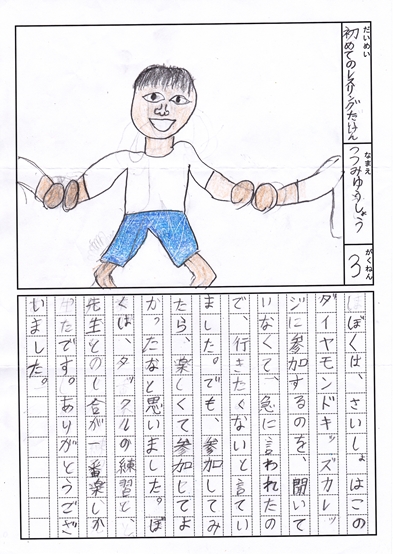 だいめい
初めてのレスリングたいけん
なまえ
つつみゆうしょう
がくねん
3
ぼくは、さいしょはこの
ダイヤモンドキッズカレッ
ジに参加するのを、聞いて
いなくて、急に言われたの
で、行きたくないと言てい
ました。でも、参加してみ
たら、楽しくて参加してよ
かったなと思いました。ぼ
くは、タックルの練習と、
先生とのし合が一番楽しか
たです。ありがとうござ
いました。